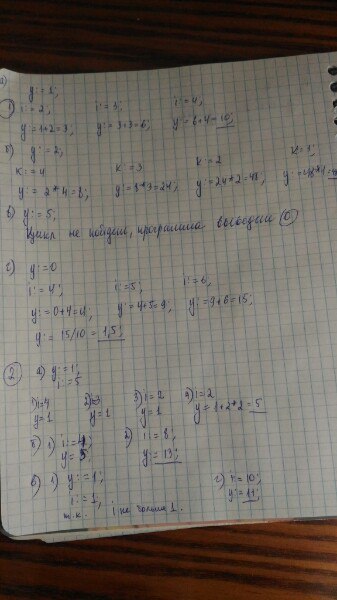 а)
y:=1;
① i:=2, i:=3; i:=4,
y:=1+2=3; y:=3+3=6; y:=6+4=10;
б) y:=2;
к:=4 к:=3 к:=2 к:=1;
y:=2*4=8; y:=8*3=24; y:=24*2=48;
в) y:=5;
Цикл не пойдет, программа выведет 0
г) y:=0
i:=4; i:=5; i:=6,
y:=0+4=4; y:=4+5=9; y:=9+6=15,
y:=15/10=1,5;
② а) y:=1;
i:=5
1) i=4 2) i=3 3) i=2 4) i=2
y=1 y=1 y=1 y=1+2*2=5
1) 2) i:=8;
y:=13;
в) 1) y:=1; г) i:=10;
i:=1, y:=11;
т.к. i не больше 1.